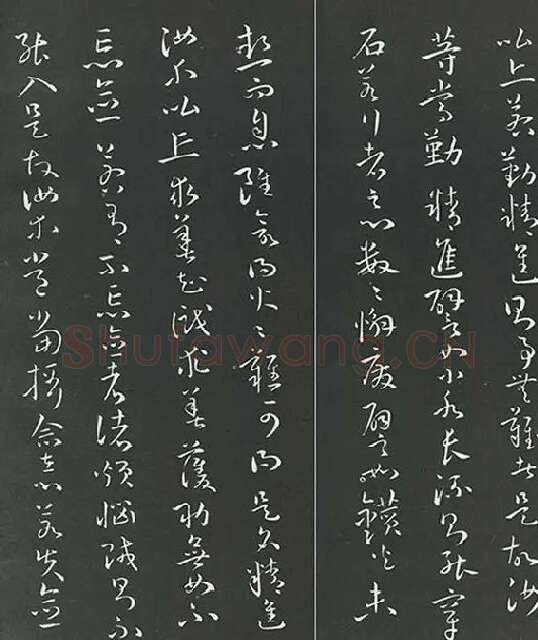 比丘若勤精進則事無難者是故汝
等當勤精進譬如小水長流則能穿
石若行者之心數々懈廢譬如鑽火未
熱而息雖欲得火々難可得是名精進
汝等比丘求善知識求善護助無如不
忘念若有不忘念者諸煩惱賊則不
能入是故汝等常當攝念在心若失念
Shufawang.CN